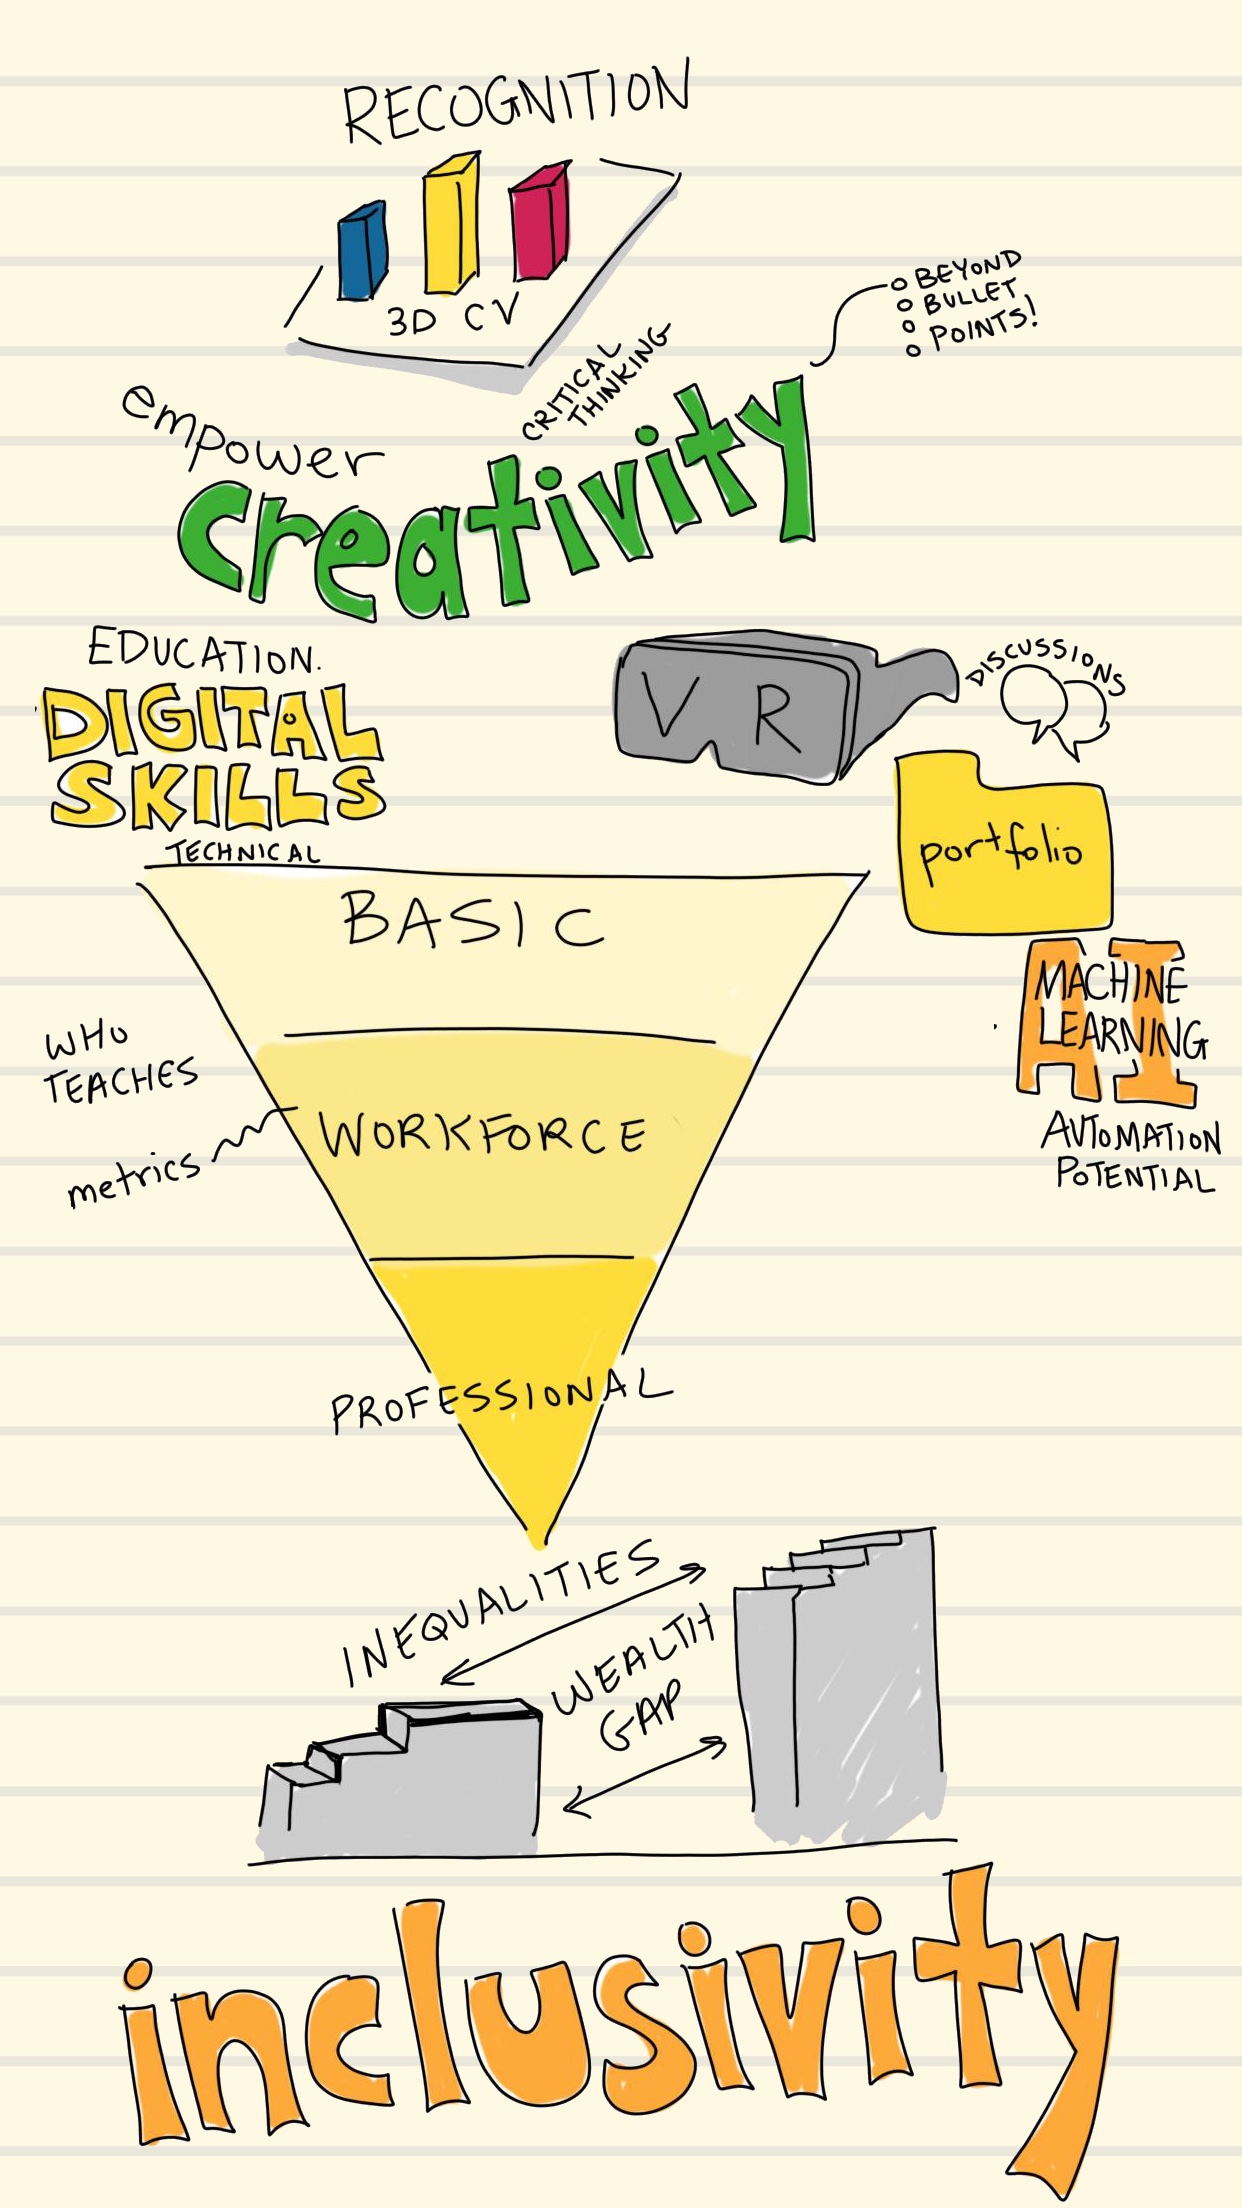 RECOGNITION
3D CV
BEYOND
BULLET
POINTS!
CRITICAL
THINKING
empower
creativity
EDUCATION.
DIGITAL
SKILLS
TECHNICAL
VR
DISCUSSIONS
portfolio
BASIC
AI
MACHINE
LEARNING
AUTOMATION
POTENTIAL
WHO
TEACHES
metrics
WORKFORCE
PROFESSIONAL
INEQUALITIES
WEALTH
GAP
inclusivity